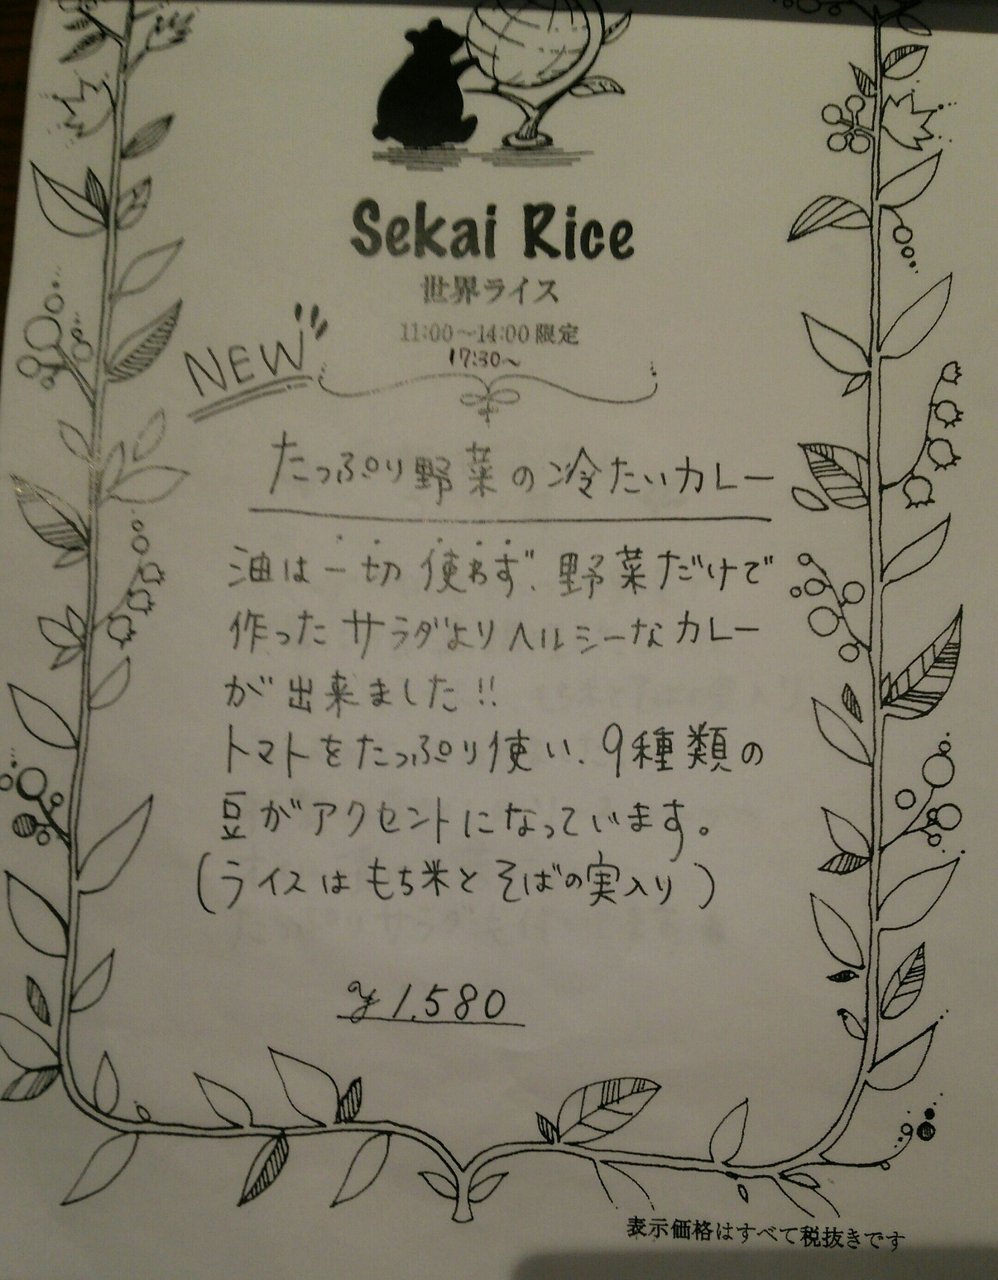 Sekai Rice
世界ライス
11:00〜14:00 限定
17:30〜
NEW
たっぷり野菜の冷たいカレー
油は一切使わず、野菜だけで
作ったサラダよりヘルシーなカレー
が出来ました!!
トマトをたっぷり使い、9種類の
豆がアクセントになっています。
(ライスはもち米とそばの実入り)
¥1,580
表示価格はすべて税抜きです